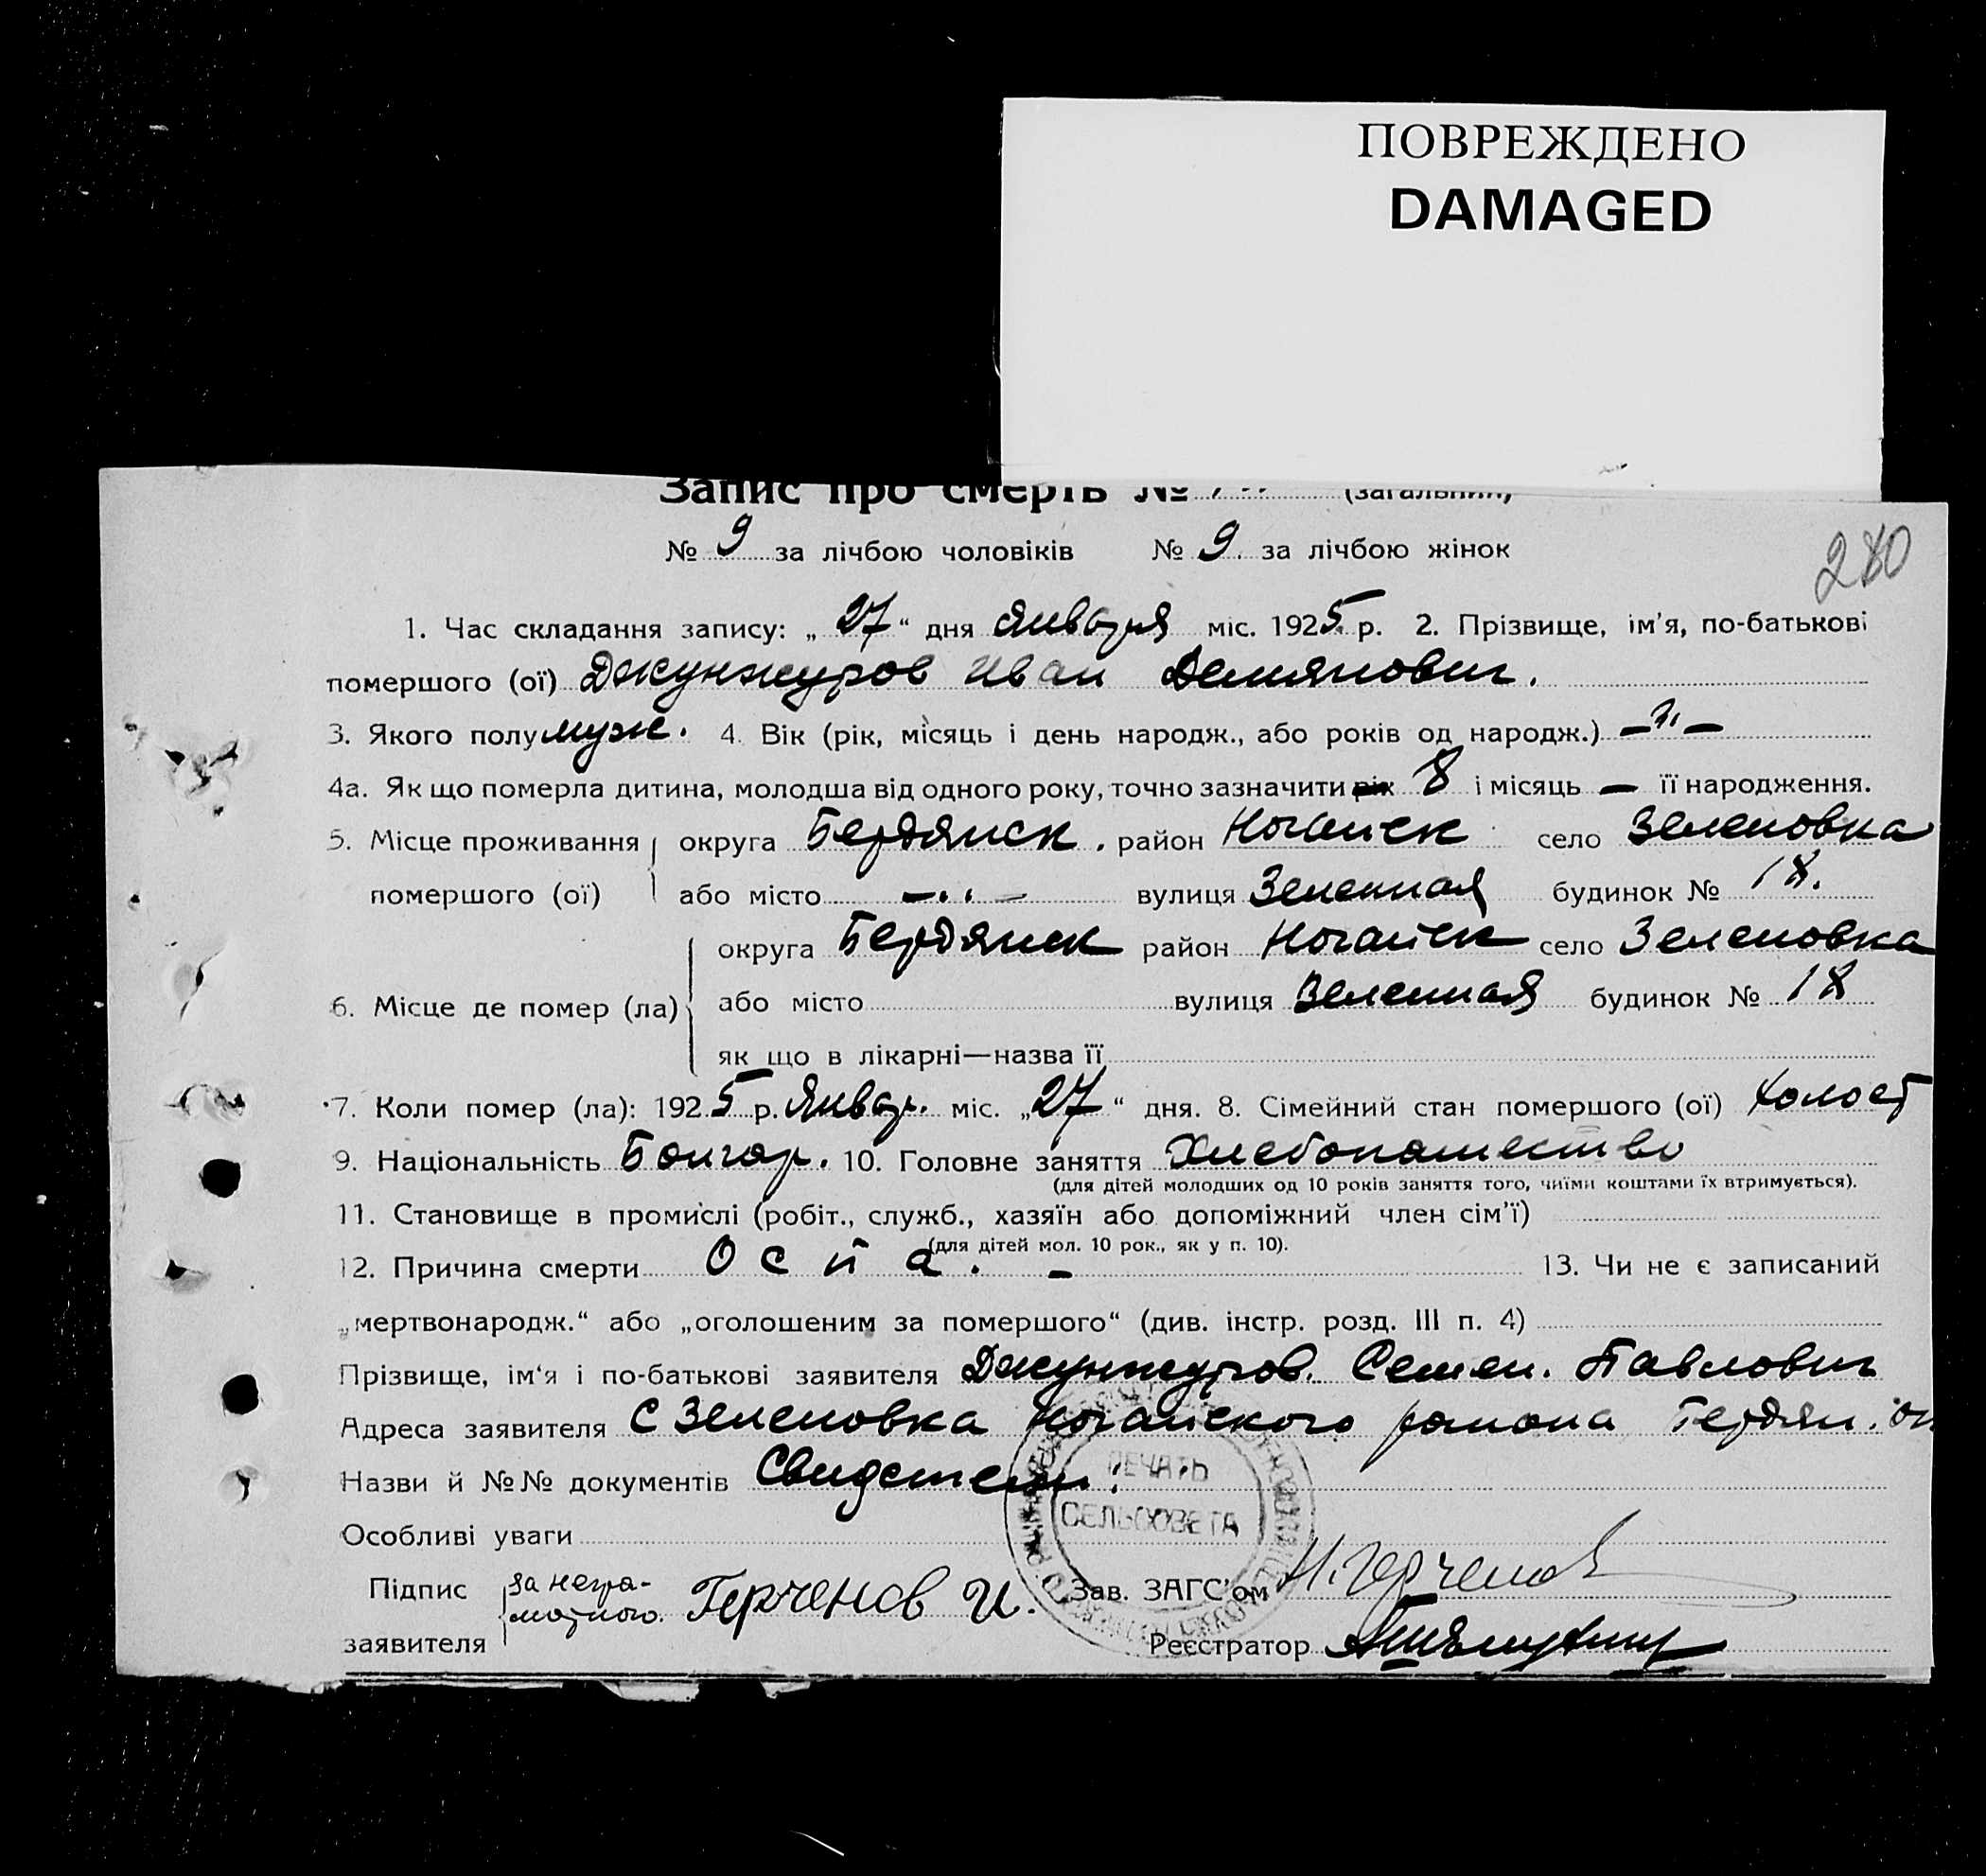 ПОВРЕЖДЕНО
DAMAGED
Запис про смерть № (загальний)
№ 9 за лічбою чоловіків № 9. за лічбою жінок
280
1. Час складання запису: „27“ дня Января міс. 1925 р. 2. Прізвище, ім'я, по-батькові
помершого (ої) Джунжуров Иван Демянович.
3. Якого полу муж. 4. Вік (рік, місяць і день народж., або років од народж.) —"—
4а. Як що померла дитина, молодша від одного року, точно зазначити рік 8 і місяць — її народження.
5. Місце проживання округа Бердянск. район Ногайск село Зеленовка
помершого (ої) або місто —..— вулиця Зеленная будинок № 18.
округа Бердянск район Ногайск село Зеленовка
6. Місце де помер (ла) або місто вулиця Зеленная будинок № 18
як що в лікарні—назва її
7. Коли помер (ла): 1925 р. Январ. міс. „27“ дня. 8. Сімейний стан помершого (ої) холост
9. Національність Болгар. 10. Головне заняття Хлебопашество
(для дітей молодших од 10 років заняття того, чиїми коштами їх втримується).
11. Становище в промислі (робіт., служб., хазяїн або допоміжний член сім'ї)
(для дітей мол. 10 рок., як у п. 10).
12. Причина смерти Оспа. — 13. Чи не є записаний
„мертвонародж.“ або „оголошеним за помершого“ (див. інстр. розд. III п. 4)
Прізвище, ім'я і по-батькові заявителя Джунжуров. Семен. Павлович
Адреса заявителя С Зеленовка Ногайского района Бердян. ок
Назви й №№ документів Свидетел.
ПЕЧАТЬ
СЕЛЬСОВЕТА
Особливі уваги
Підпис за негра-мотного. Герченов И. Зав. ЗАГС'ом И. Герченов
заявителя Реєстратор